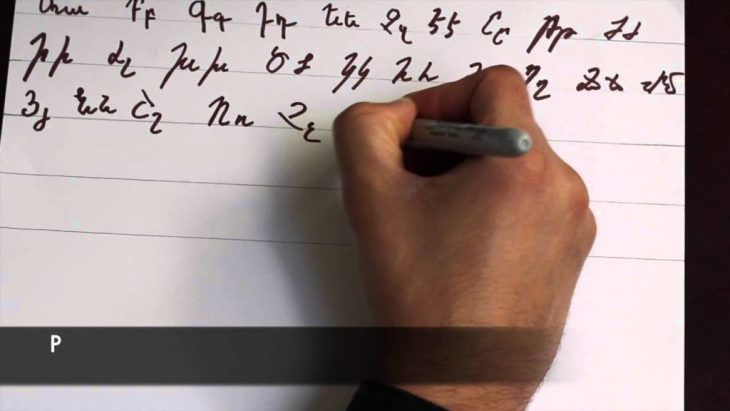 Աա Բբ Գգ Դդ Եե Զզ Էէ Ըը Թթ Ժժ
Իի Լլ Խխ Ծծ Կկ Հհ Ղղ Ճճ Մմ
Յյ Նն Շշ Ոո Չչ
P